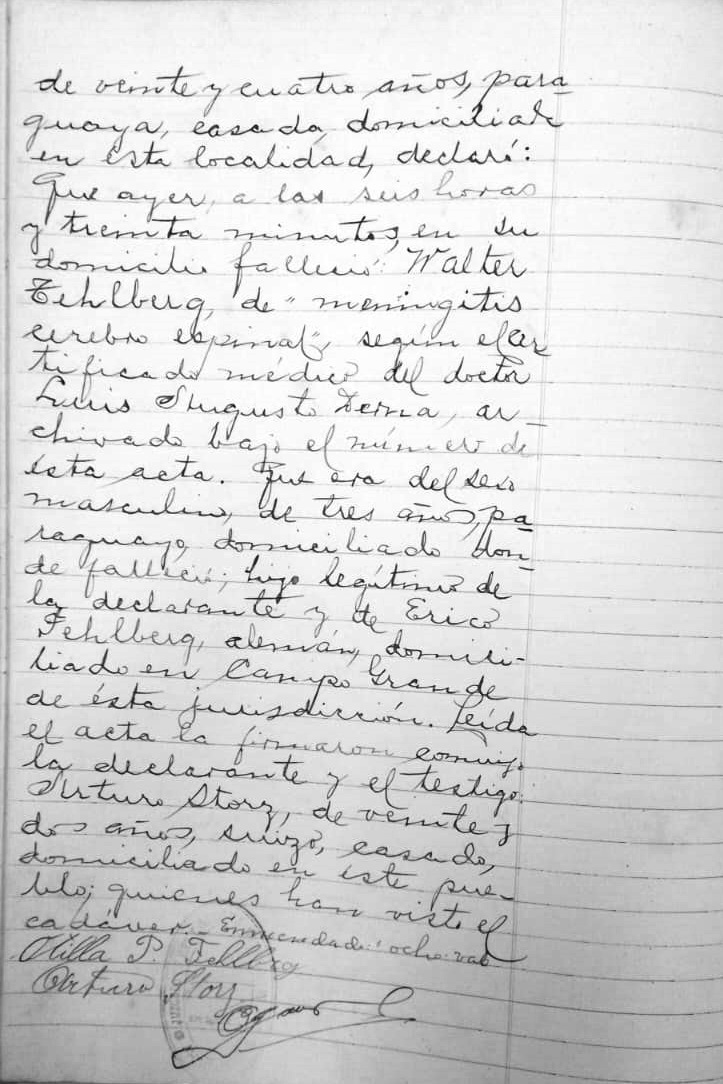 de veinte y cuatro años, para
guaya, casada, domiciliada
en ésta localidad, declaró:
Que ayer, a las seis horas
y treinta minutos, en su
domicilio falleció: Walter
Fehlberg, de "meningitis
cerebro espinal", según el cer
tificado médico del doctor
Luis Augusto, ar-
chivado bajo el número de
ésta acta. Que era del sexo
masculino, de tres años, pa
raguayo, domiciliado don-
de falleció; hijo legítimo de
la declarante y de Erico
Fehlberg, alemán, domici-
liado en Campo Grande
de ésta jurisdicción. Leída
el acta la firmaron conmigo
la declarante y el testigo:
Arturo Storz, de veinte y
dos años, suizo, casado,
domiciliado en este pue-
blo; quienes han visto el
cadáver.- Enmendado: ocho- vale
P. Fehlberg
Arturo Storz